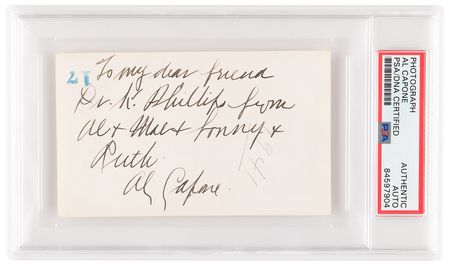 27 To my dear friend
Dr. K. Phillips from
Al & Mae & Sonny &
Ruth.
Al Capone.
PHOTOGRAPH
AL CAPONE
PSA/DNA CERTIFIED
PSA
AUTHENTIC
AUTO
84597904